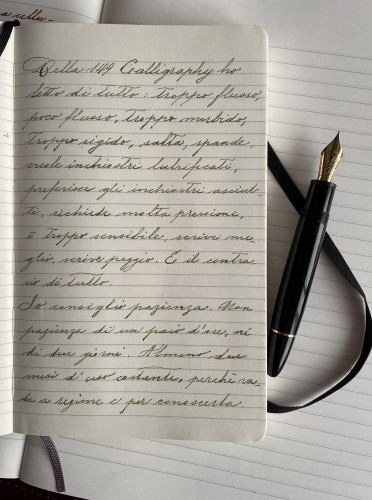 Della 149 Calligraphy ho
letto di tutto: troppo flusso,
poco flusso, troppo morbido,
troppo rigido, salta, spande,
vuole inchiostri lubrificati,
preferisce gli inchiostri asciut-
ti, richiede molta pressione,
è troppo sensibile, scrive me-
glio, scrive peggio. E il contra
rio di tutto.
Io consiglio pazienza. Non
pazienza di un paio d'ore, né
di due giorni. Almeno due
mesi d'uso costante, perché va-
da a regime e per conoscerla.